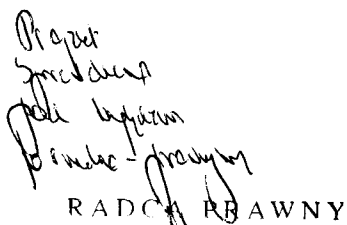 Projekt
sprawdzono
pod względem
formalno-prawnym
RADCA PRAWNY